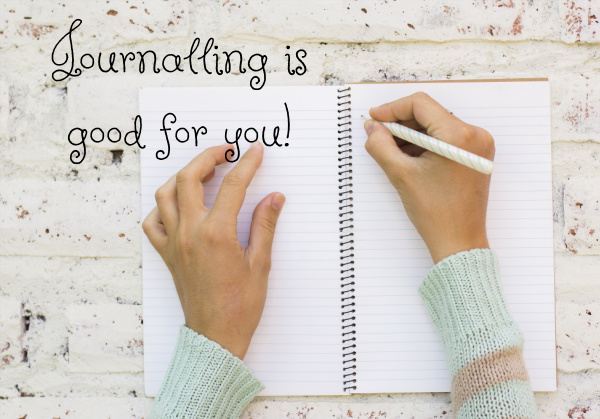 Journalling is
good for you!